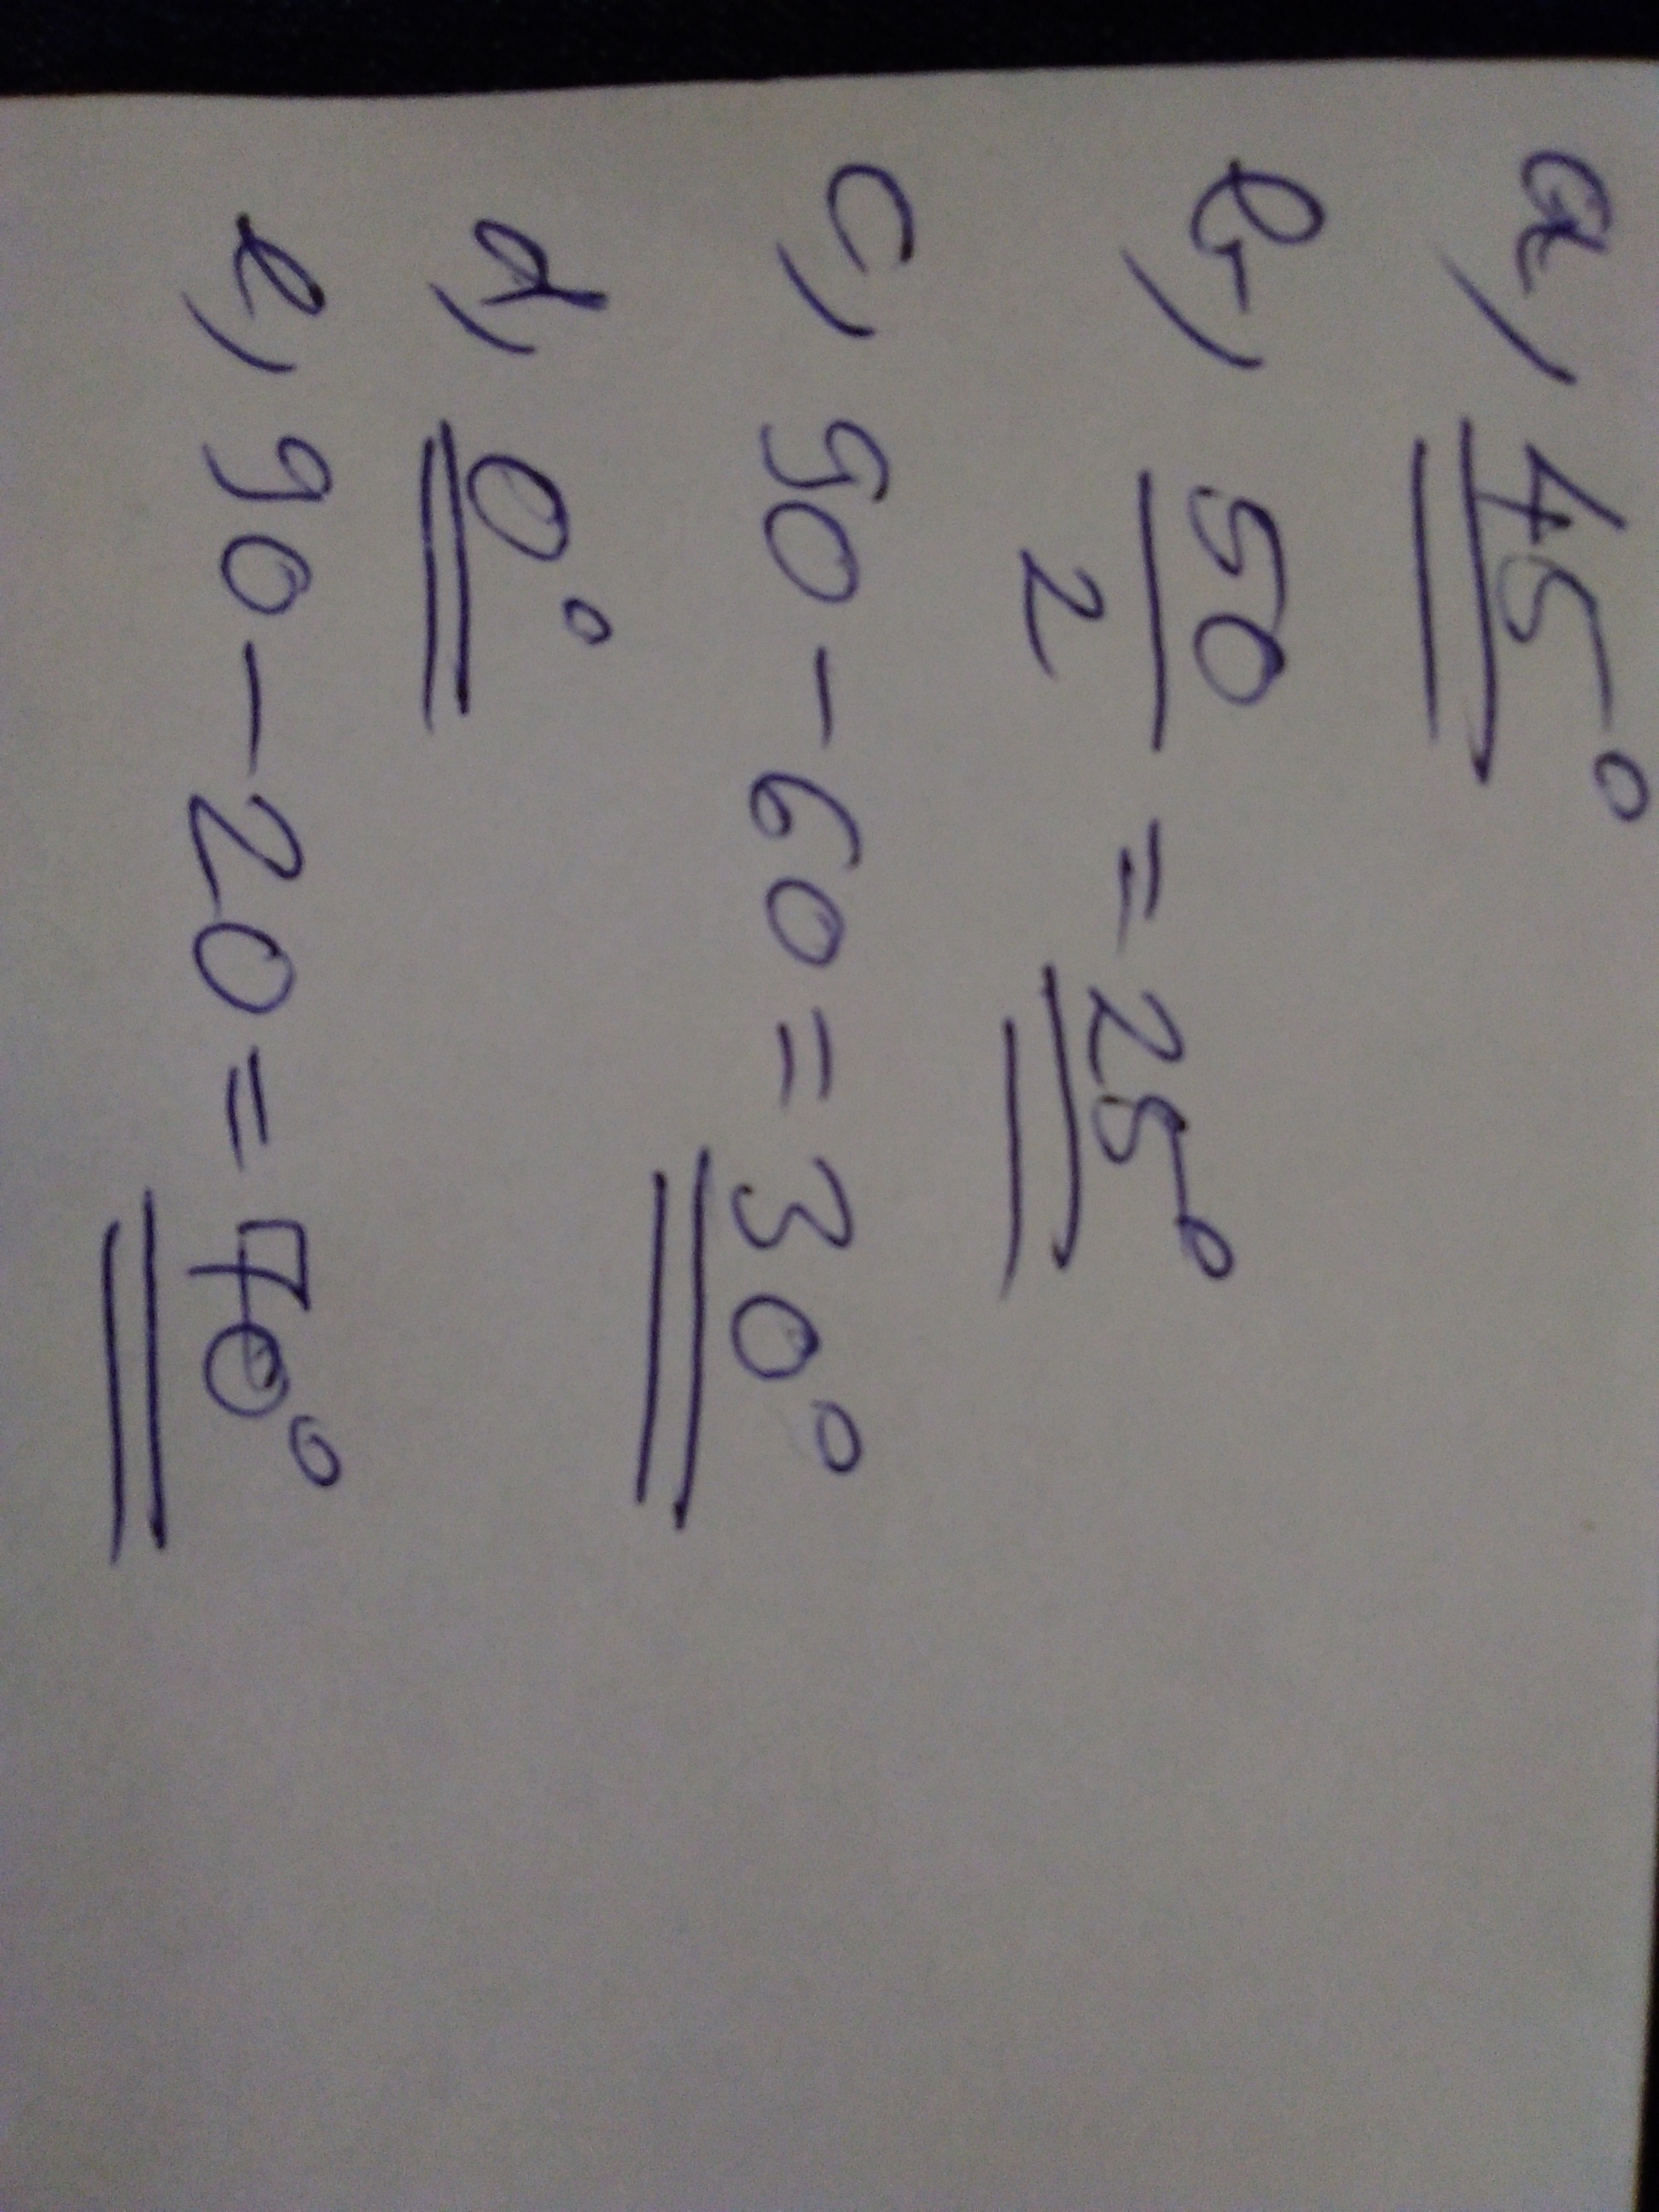 a) 45°
b) 50/2 = 25°
c) 90 - 60 = 30°
d) 0°
e) 90 - 20 = 70°